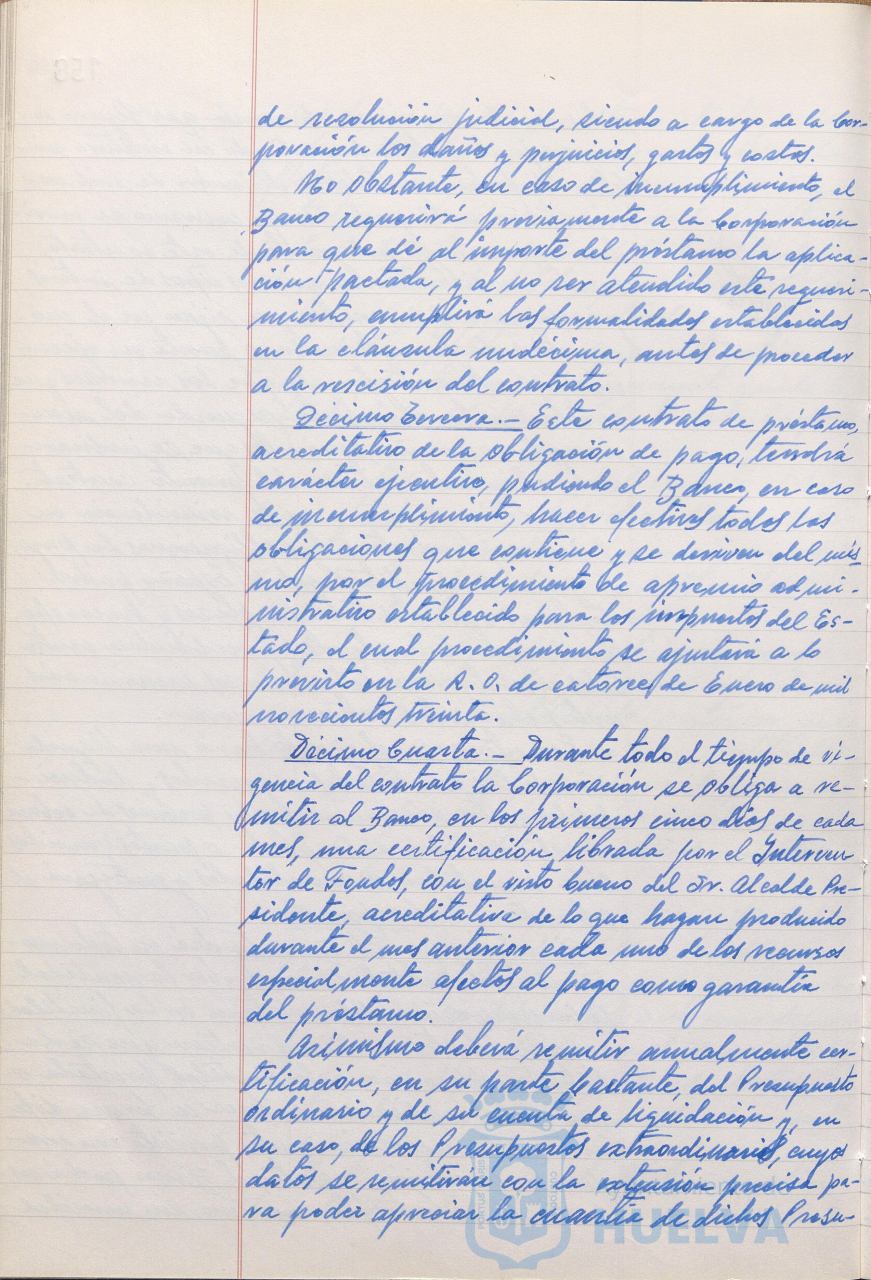 de resolución judicial, siendo a cargo de la Cor-
poración los daños y perjuicios, gastos y costos.
No obstante, en caso de incumplimiento, el
Banco requerirá previamente a la Corporación
para que dé al importe del préstamo la aplica-
ción pactada, y al no ser atendido este requeri-
miento, cumplirá las formalidades establecidas
en la cláusula undécima, antes de proceder
a la rescisión del contrato.
Décimo Tercera.- Este contrato de préstamo,
acreditativo de la obligación de pago, tendrá
carácter ejecutivo, pudiendo el Banco, en caso
de incumplimiento, hacer efectivas todas las
obligaciones que contiene y se deriven del mis
mo, por el procedimiento de apremio admi-
nistrativo establecido para los impuestos del Es-
tado, el cual procedimiento se ajustará a lo
previsto en la R. O. de catorce de Enero de mil
novecientos treinta.
Décimo Cuarta.- Durante todo el tiempo de vi-
gencia del contrato la Corporación se obliga a re-
mitir al Banco, en los primeros cinco días de cada
mes, una certificación librada por el Interven
tor de Fondos, con el visto bueno del Sr. Alcalde Pre-
sidente, acreditativa de lo que hayan producido
durante el mes anterior cada uno de los recursos
especialmente afectos al pago como garantía
del préstamo.
Asimismo deberá remitir anualmente cer-
tificación, en su parte bastante, del Presupuesto
ordinario y de su cuenta de liquidación y, en
su caso, de los Presupuestos extraordinarios, cuyos
datos se remitirán con la extensión precisa pa-
ra poder apreciar la cuantía de dichos Presu-
Ayuntamiento de
HUELVA